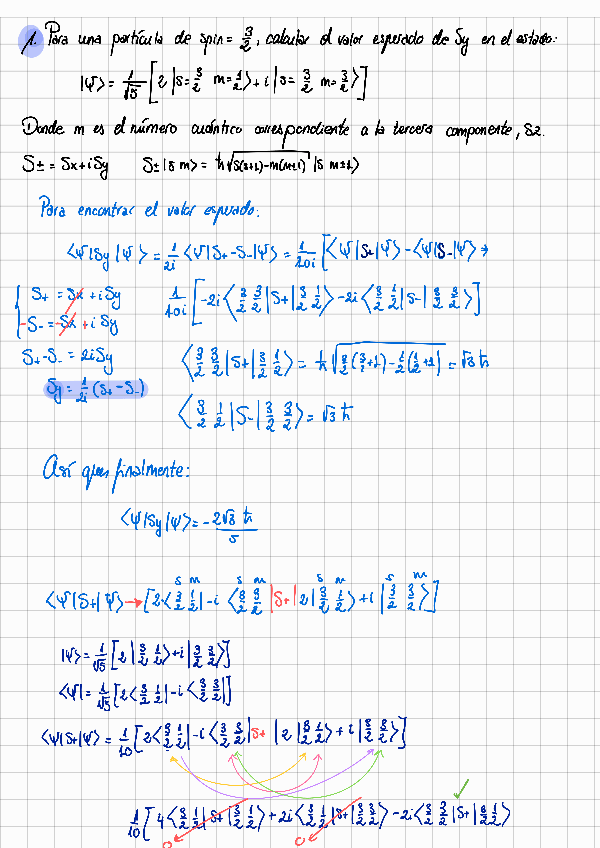 1. Para una partícula de spin = 3/2, calcular el valor esperado de Sy en el estado:
|Ψ> = 1/√5 [2 |s=3/2 m=1/2> + i |s=3/2 m=3/2>]
Donde m es el número cuántico correspondiente a la tercera componente, Sz.
S± = Sx ± iSy    S± |s m> = ħ √(s(s+1)-m(m±1)) |s m±1>
Para encontrar el valor esperado:
<Ψ|Sy|Ψ> = 1/2i <Ψ|S+ - S-|Ψ> = 1/10i [<Ψ|S+|Ψ> - <Ψ|S-|Ψ> →
S+ = Sx + iSy
-S- = -Sx + iSy
S+ - S- = 2iSy
Sy = 1/2i (S+ - S-)
1/10i [-2i <3/2 3/2|S+|3/2 1/2> - 2i <3/2 1/2|S-|3/2 3/2>]
<3/2 3/2|S+|3/2 1/2> = ħ √(3/2(3/2+1) - 1/2(1/2+1)) = √3 ħ
<3/2 1/2|S-|3/2 3/2> = √3 ħ
Así que finalmente:
<Ψ|Sy|Ψ> = -2√3 ħ / 5
s m s m s m s m
<Ψ|S+|Ψ> → [2<3/2 1/2| - i <3/2 3/2|S+| 2|3/2 1/2> + i |3/2 3/2>]
|Ψ> = 1/√5 [2 |3/2 1/2> + i |3/2 3/2>]
<Ψ| = 1/√5 [2 <3/2 1/2| - i <3/2 3/2|]
<Ψ|S+|Ψ> = 1/10 [2<3/2 1/2| - i <3/2 3/2|S+ |2 |3/2 1/2> + i |3/2 3/2>]
1/10 [4 <3/2 1/2|S+|3/2 1/2> + 2i <3/2 1/2|S+|3/2 3/2> - 2i <3/2 3/2|S+|3/2 1/2>
0 0